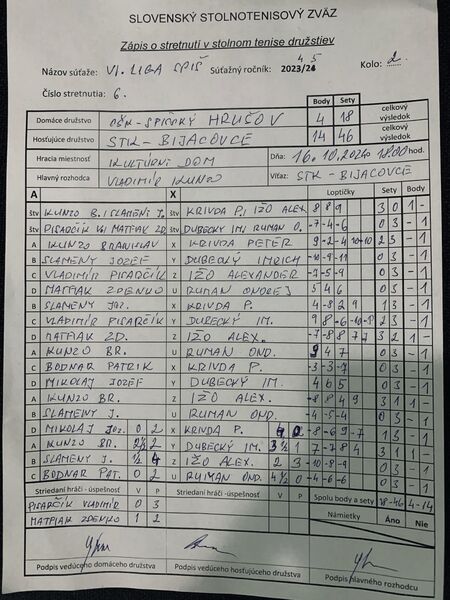 SLOVENSKÝ STOLNOTENISOVÝ ZVÄZ
Zápis o stretnutí v stolnom tenise družstiev
Názov súťaže: VI. LIGA SPIŠ Súťažný ročník: 2023/24 4 5 Kolo: 2.
Číslo stretnutia: 6.
Body Sety
Domáce družstvo OŠK-SPIŠSKÝ HRUŠOV 4 18 celkový výsledok
Hosťujúce družstvo STK-BIJACOVCE 14 46 celkový výsledok
Hracia miestnosť KULTÚRNI DOM Dňa: 16.10.2024 18:00 hod.
Hlavný rozhodca VLADIMÍR KUNZO Víťaz: STK-BIJACOVCE
A X Loptičky Sety Body
štv KUNZO B. SLAMENÝ J. štv KRIVDA P., IŽO ALEX 8 8 9 3 0 1 -
štv PISARČÍK Vl. MATFIAK ZD. štv DUBECKÝ IM, RUMAN O. -7-4-6 0 3 - 1
A KUNZO BRANISLAV X KRIVDA PETER 2 3 - 1
B SLAMENÝ JOZEF Y DUBECKÝ IMRICH -10-9-11 0 3 - 1
C VLADIMÍR PISARČÍK Z IŽO ALEXANDER -7-5-9 0 3 - 1
D MATFIAK ZDENKO U RUMAN ONDREJ 5 4 6 0 3 - 1
B SLAMENÝ JOZ. X KRIVDA P. 1 3 - 1
C VLADIMÍR PISARČÍK Y DUBECKÝ IM. 2 3 - 1
D MATFIAK ZD. Z IŽO ALEX. 3 2 1 -
A KUNZO BR. U RUMAN OND. 9 4 7 0 3 - 1
C BODNAR PATRIK X KRIVDA P. -3-3-7 0 3 - 1
D MIKOLAJ JOZEF Y DUBECKÝ IM. 4 6 5 0 3 - 1
A KUNZO BR. Z IŽO ALEX. -8 8 4 9 3 1 1 -
B SLAMENÝ J. U RUMAN OND. -4-5-4 0 3 - 1
D MIKOLAJ JOZ. 0 2 X KRIVDA P. 4 0 -8-6 9-7 1 3 - 1
A KUNZO BR. 2½ 2 Y DUBECKÝ IM. 3½ 1 7-7 8 4 3 1 1 -
B SLAMENÝ J. ½ 4 Z IŽO ALEX. 2 3 -10-8-9 0 3 - 1
C BODNAR PAT. 0 2 U RUMAN OND. 4½ 0 -4-6-6 0 3 - 1
Striedaní hráči - úspešnosť V P Striedaní hráči - úspešnosť V P Spolu body a sety 18-46 4-14
PISARČÍK VLADIMÍR 0 3 Námietky Áno Nie
MATFIAK ZDENKO 1 2
Podpis vedúceho domáceho družstva Podpis vedúceho hosťujúceho družstva Podpis hlavného rozhodcu